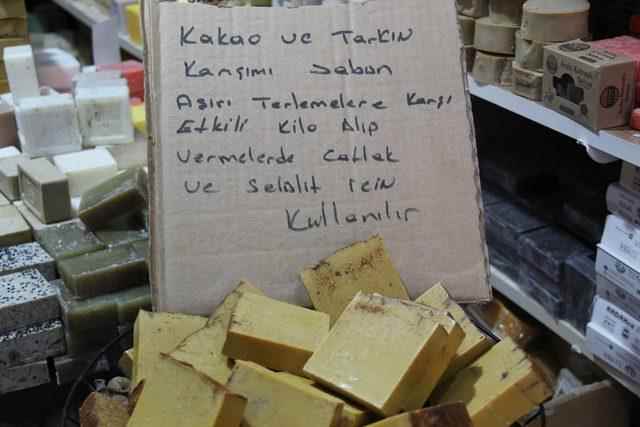 Kakao ve Tarkın
Karışımı Sabun
Aşırı Terlemelere Karşı
Etkili Kilo Alıp
Vermelerde Catlak
ve Selülit icin
Kullanılır